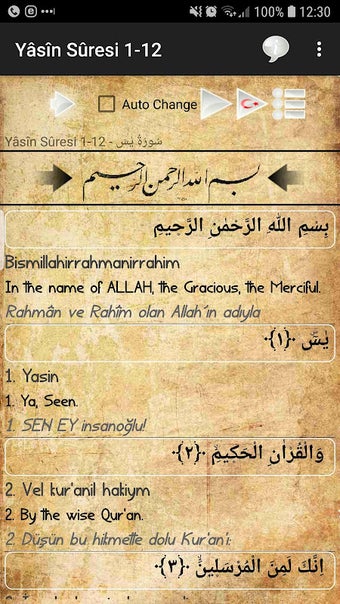 100% 12:30
Yâsîn Sûresi 1-12
Auto Change
Yâsîn Sûresi 1-12 - سُورَةُ يسٓ
بسم الله الرحمن الرحيم
بِسْمِ اللّٰهِ الرَّحْمٰنِ الرَّحٖيمِ
Bismillahirrahmanirrahim
In the name of ALLAH, the Gracious, the Merciful.
Rahmân ve Rahîm olan Allah´ın adıyla
يٰسٓ ﴿١﴾
1. Yasin
1. Ya, Seen.
1. SEN EY insanoğlu!
وَالْقُرْاٰنِ الْحَكٖيمِ ﴿٢﴾
2. Vel kur'anil hakiym
2. By the wise Qur'an.
2 Düşün bu hikmetle dolu Kur'ani:
اِنَّكَ لَمِنَ الْمُرْسَلٖينَ ﴿٣﴾